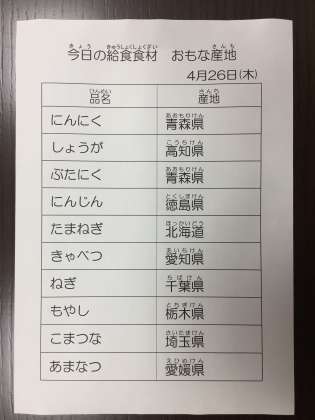 今日の給食食材　おもな産地
4月26日(木)
品名　産地
にんにく　青森県
しょうが　高知県
ぶたにく　青森県
にんじん　徳島県
たまねぎ　北海道
きゃべつ　愛知県
ねぎ　千葉県
もやし　栃木県
こまつな　埼玉県
あまなつ　愛媛県